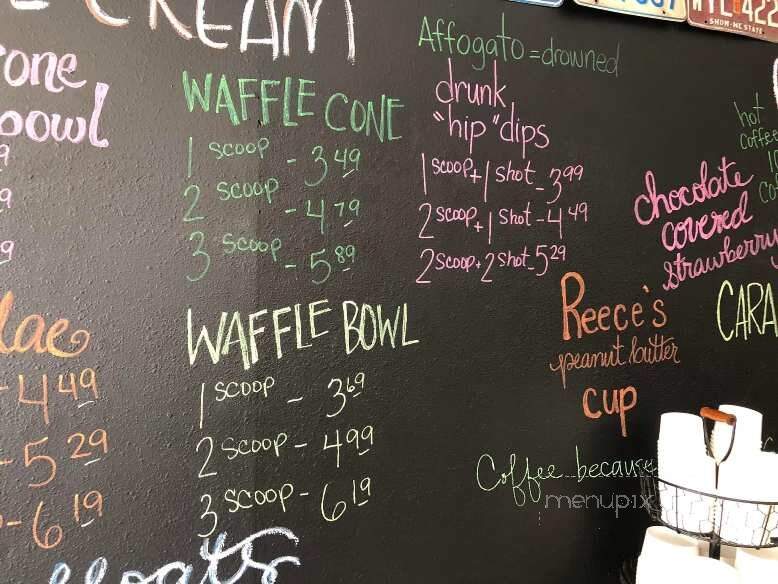 CREAM
one
bowl
9
9
9
WAFFLE CONE
1 scoop - 3 49
2 scoop - 4 79
3 scoop - 5 89
Affogato = drowned
drunk
"hip" dips
1 scoop + 1 shot - 3 99
2 scoop + 1 shot - 4 49
2 scoop + 2 shot - 5 29
hot
coffee
chocolate
covered
strawberry
lae
- 4 49
- 5 29
- 6 19
WAFFLE BOWL
1 scoop - 3 69
2 scoop - 4 99
3 scoop - 6 19
floats
Reece's
peanut butter
cup
CARA
Coffee because
menupix
SHOW-ME STATE